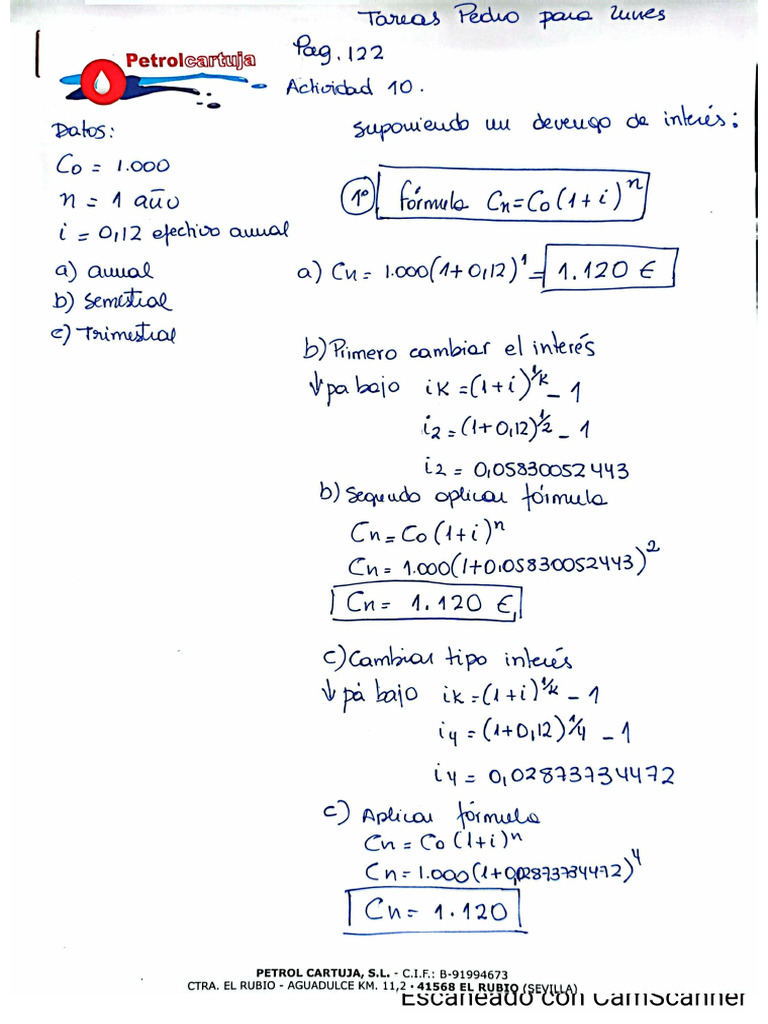 Tareas Pedro para lunes
Petrolcartuja
Pag. 122
Actividad 10.
Datos:
suponiendo un devengo de interés:
Co = 1.000
n = 1 año
i = 0,12 efectivo anual
a) anual
b) Semestral
c) Trimestral
1º fórmula Cn=Co(1+i)^n
a) Cn = 1.000(1+0,12)^1 = 1.120 €
b) Primero cambiar el interés
↓ pa bajo iK = (1+i)^1/K - 1
i2 = (1+0,12)^1/2 - 1
i2 = 0,05830052443
b) Segundo aplicar fórmula
Cn = Co(1+i)^n
Cn = 1.000(1+0,05830052443)^2
Cn = 1.120 €
c) Cambiar tipo interés
↓ pá bajo iK = (1+i)^1/K - 1
i4 = (1+0,12)^1/4 - 1
i4 = 0,02873734472
c) Aplicar fórmula
Cn = Co(1+i)^n
Cn = 1.000(1+0,02873734472)^4
Cn = 1.120
PETROL CARTUJA, S.L. - C.I.F.: B-91994673
CTRA. EL RUBIO - AGUADULCE KM. 11,2 · 41568 EL RUBIO (SEVILLA)
Escaneado con CamScanner